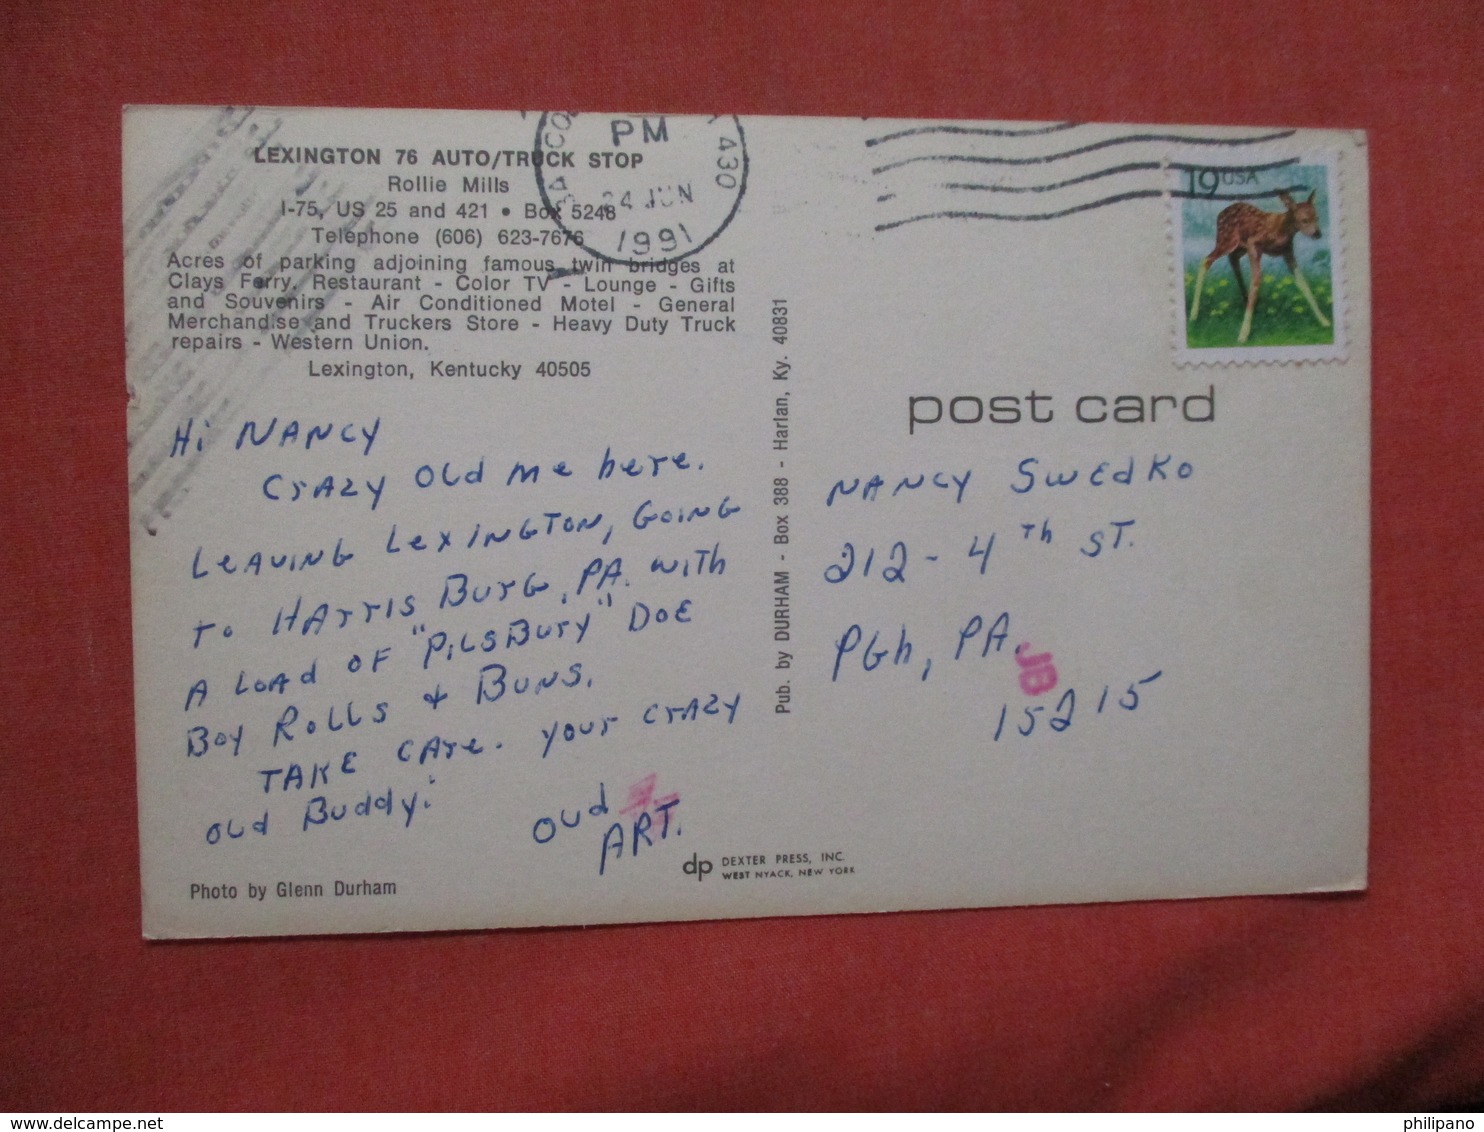 LEXINGTON 76 AUTO/TRUCK STOP
Rollie Mills
I-75, US 25 and 421 • Box 5248
Telephone (606) 623-7676
Acres of parking adjoining famous twin bridges at
Clays Ferry, Restaurant - Color TV - Lounge - Gifts
and Souvenirs - Air Conditioned Motel - General
Merchandise and Truckers Store - Heavy Duty Truck
repairs - Western Union.
Lexington, Kentucky 40505
Hi NANCY
CrAZy OLd me here.
LeAVING LexINGTON, GOING
To HArris BurG, PA. with
A LoAd oF "PiLsBury" DOE
Boy RoLLs & BuNs.
TAKE CAre. your crAZy
oLd Buddy.
OLd
ART.
Photo by Glenn Durham
dp DEXTER PRESS, INC.
WEST NYACK, NEW YORK
Pub. by DURHAM - Box 388 - Harlan, Ky. 40831
PM
24 JUN
1991
430
19 USA
post card
NANCY SWEdKO
212 - 4 Th ST.
PGh, PA.
JB
15215
philipano